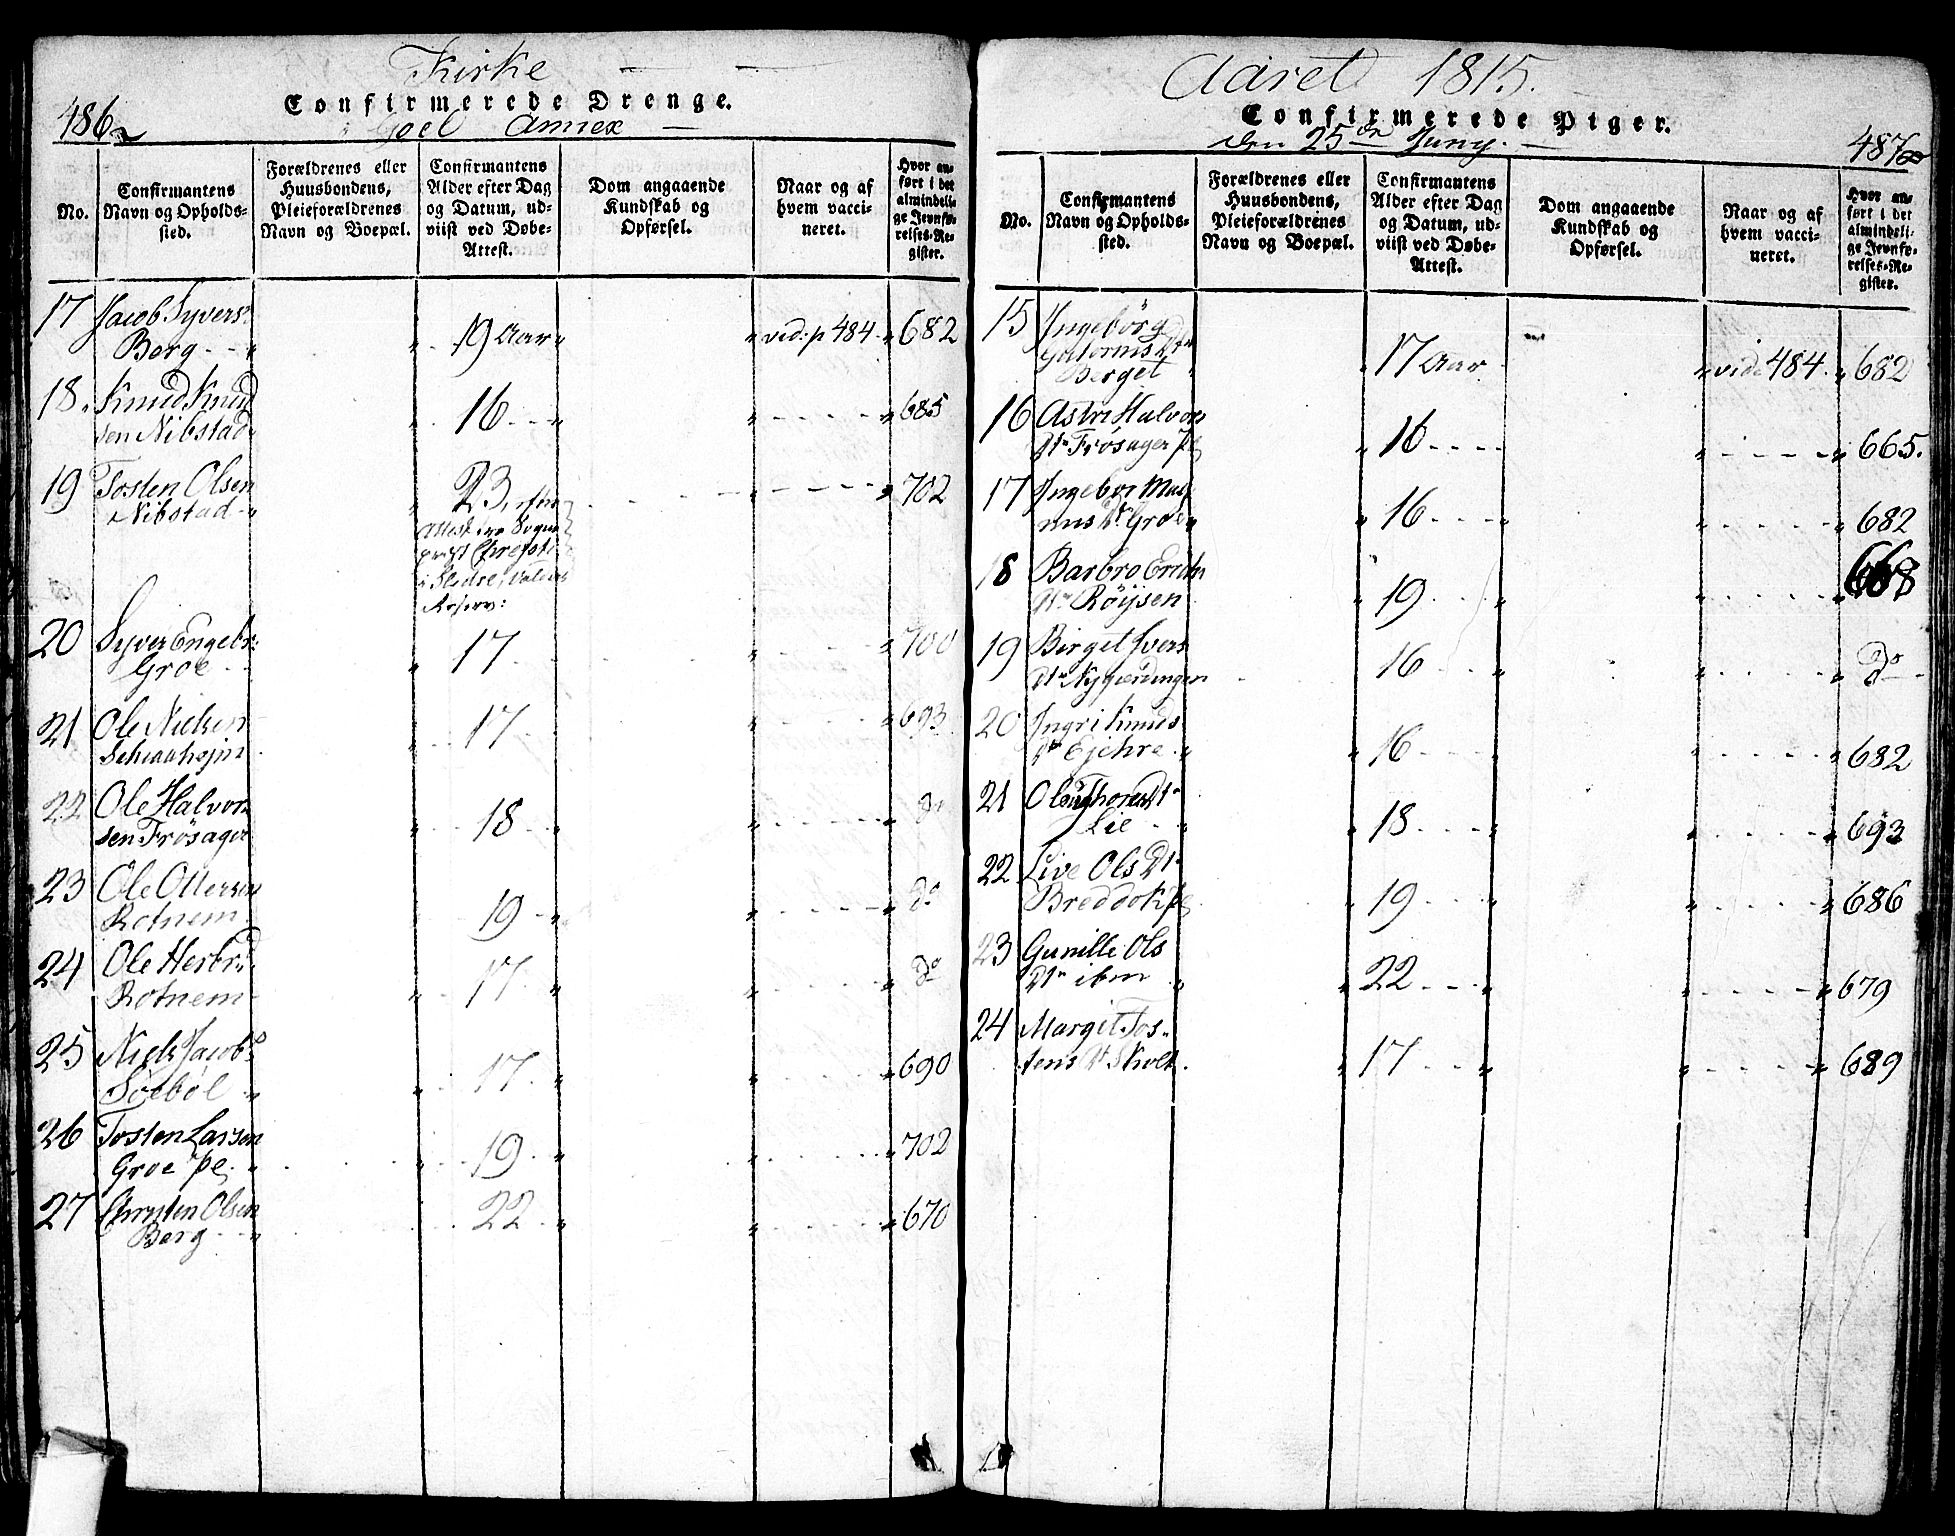 Kirke
486
Confirmerede Drenge.
Goel Annex
No.
Confirmantens Navn og Opholds-sted.
Forældrenes eller Huusbondens, Pleieforældrenes Navn og Boepæl.
Confirmantens Alder efter Dag og Datum, ud-viist ved Døbe-Attest.
Dom angaaende Kundskab og Opførsel.
Naar og af hvem vacci-neret.
Hvor an-ført i det almindeli-ge Jevnfø-relses-Re-gister.
17 Jacob Syvers 19 Aar vid: p 484 682
Berg
18. Knud Knud 16 685
sen Nibstad
19 Tosten Olsen 23, efter 702
Nibstad Attest fra Sogne
præst
i Slidre, Valders
20 Syver Engebr: 17 700
Groe
21 Ole Nielsen 17 693
22 Ole Halvor 18 do
sen Frösager
23 Ole Ottersen 19 do
Rotnem
24 Ole Herbr 17 do
Rotnem
25 Niels Jacobs 17 690
Söeböl
26 Tosten Larsen 19 702
Groe pl
27 Chrysten Olsen 22 670
Berg
Aaret 1815.
Confirmerede Piger.
den 25de Juny.
487
No.
Confirmantens Navn og Opholds-sted.
Forældrenes eller Huusbondens, Pleieforældrenes Navn og Boepæl.
Confirmantens Alder efter Dag og Datum, ud-viist ved Døbe-Attest.
Dom angaaende Kundskab og Opførsel.
Naar og af hvem vacci-neret.
Hvor an-ført i det almindeli-ge Jevnfø-relses-Re-gister.
15 Ingebörg
Gutorms Dtr
Berget 17 Aar vide 484 682
16 Astri Halvors
Dtr Frösager pl 16 665.
17 Ingebor Mag
nus Dr Groe 16 682
18 Barbro Erichs 668
Dtr Röijsen 19
19 Birget Ivers 16 Do
Dtr Nygaardungen
20 Ingri Knuds
Dtr Ejehre 16 682
21 Olaug Thores Dtr
Lie 18 693
22 Live Ols Dtr
Breddok pl 19 686
23 Gunille Ols
Dtr ibm 22 679
24 Margit Tos-
tens Dt Skolt 17 689